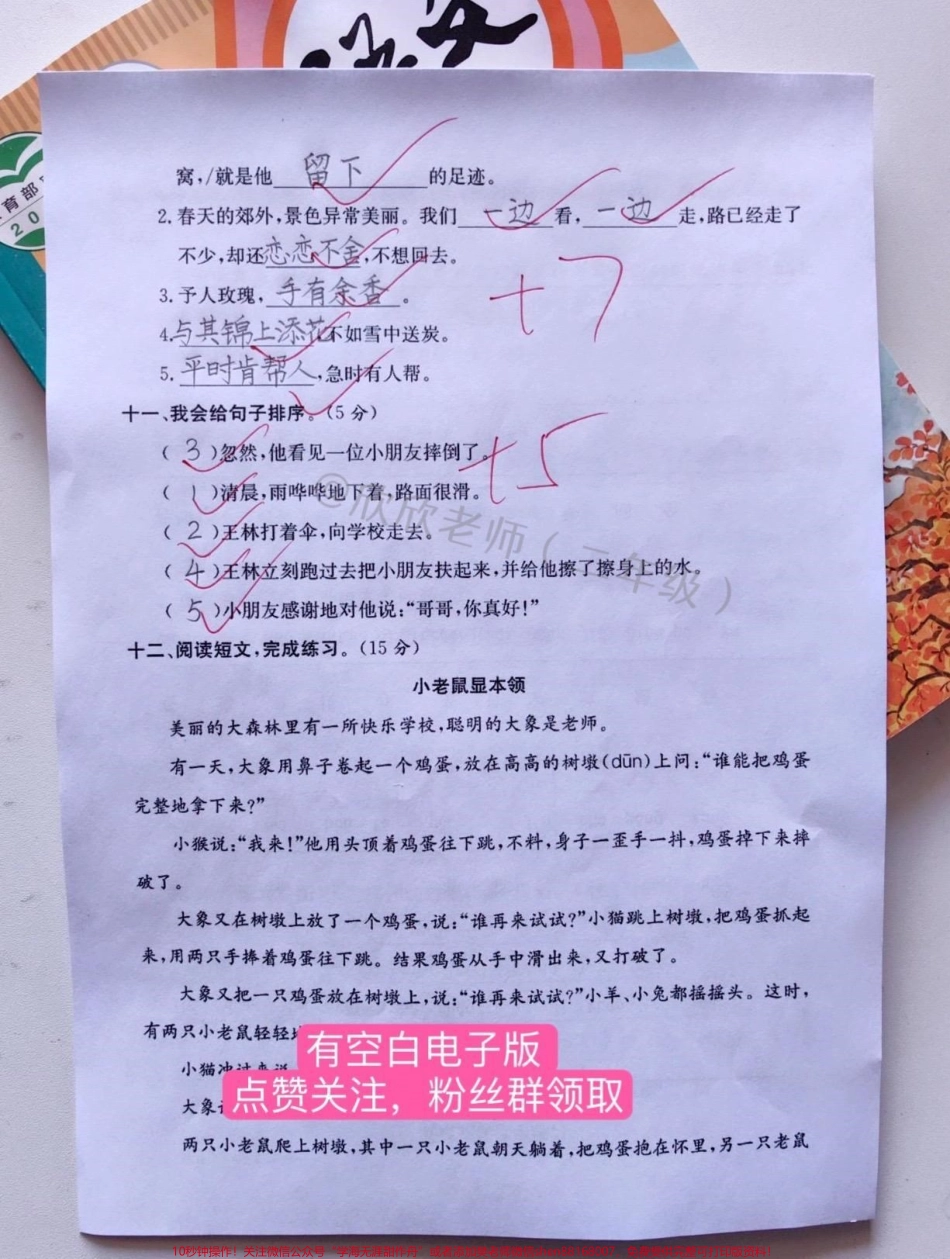 语文
育部
20
窝,/就是他留下的足迹。
2.春天的郊外,景色异常美丽。我们一边看,一边走,路已经走了
不少,却还恋恋不舍,不想回去。
3.予人玫瑰,手有余香。
+7
4.与其锦上添花不如雪中送炭。
5.平时肯帮人,急时有人帮。
十一、我会给句子排序。(5分)
(3)忽然,他看见一位小朋友摔倒了。
+5
(1)清晨,雨哗哗地下着,路面很滑。
@欣欣老师(二年级)
(2)王林打着伞,向学校走去。
(4)王林立刻跑过去把小朋友扶起来,并给他擦了擦身上的水。
(5)小朋友感谢地对他说:“哥哥,你真好!”
十二、阅读短文,完成练习。(15分)
小老鼠显本领
美丽的大森林里有一所快乐学校,聪明的大象是老师。
有一天,大象用鼻子卷起一个鸡蛋,放在高高的树墩(dūn)上问:“谁能把鸡蛋
完整地拿下来?”
小猴说:“我来!”他用头顶着鸡蛋往下跳,不料,身子一歪手一抖,鸡蛋掉下来摔
破了。
大象又在树墩上放了一个鸡蛋,说:“谁再来试试?”小猫跳上树墩,把鸡蛋抓起
来,用两只手捧着鸡蛋往下跳。结果鸡蛋从手中滑出来,又打破了。
大象又把一只鸡蛋放在树墩上,说:“谁再来试试?”小羊、小兔都摇摇头。这时,
有两只小老鼠轻轻
有空白电子版
小猫冲过来说
点赞关注,粉丝群领取
大象
两只小老鼠爬上树墩,其中一只小老鼠朝天躺着,把鸡蛋抱在怀里,另一只老鼠